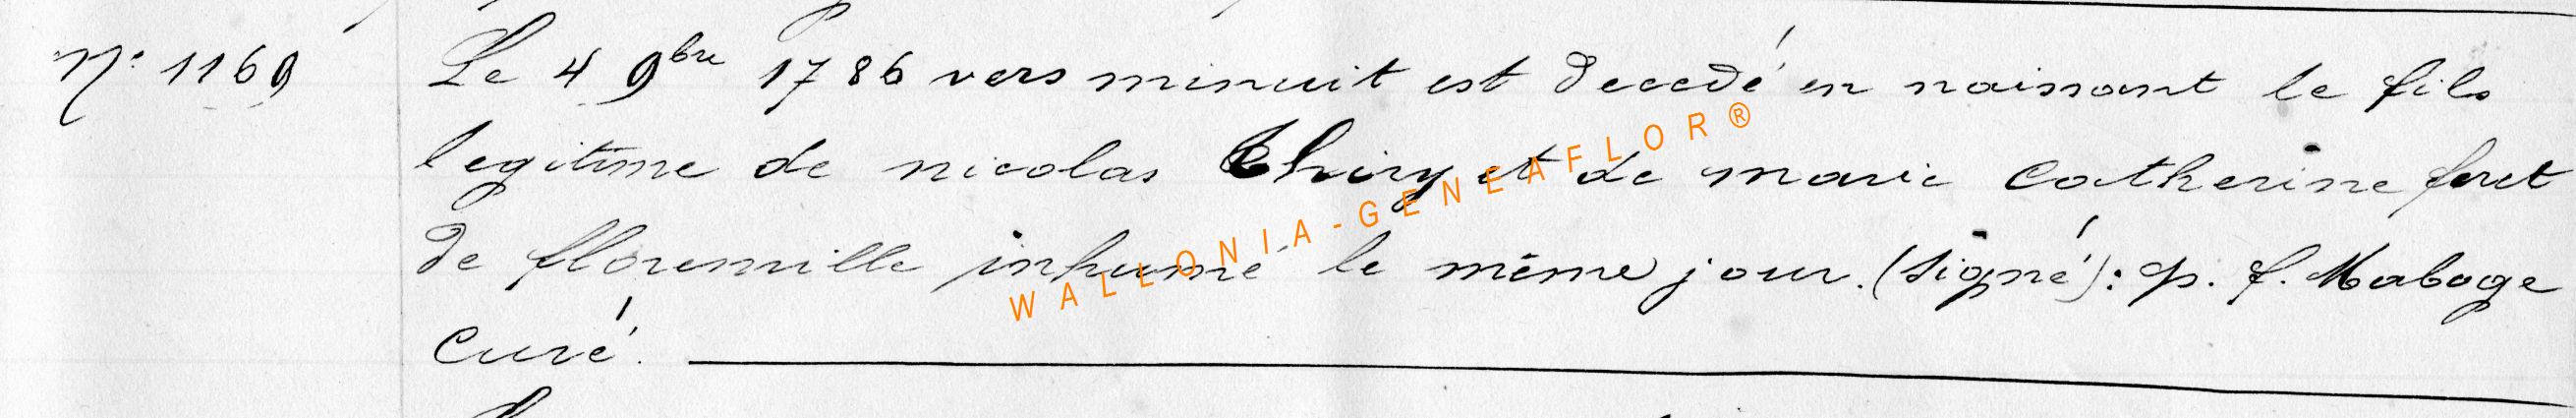 N° 1169 Le 4 9bre 1786 vers minuit est decedé en naissant le fils
legitime de nicolas thiry et de marie catherine foret
de florenville inhumé le même jour. (signé): p. f. Maboge
curé.
WALLONIA-GENEAFLOR®